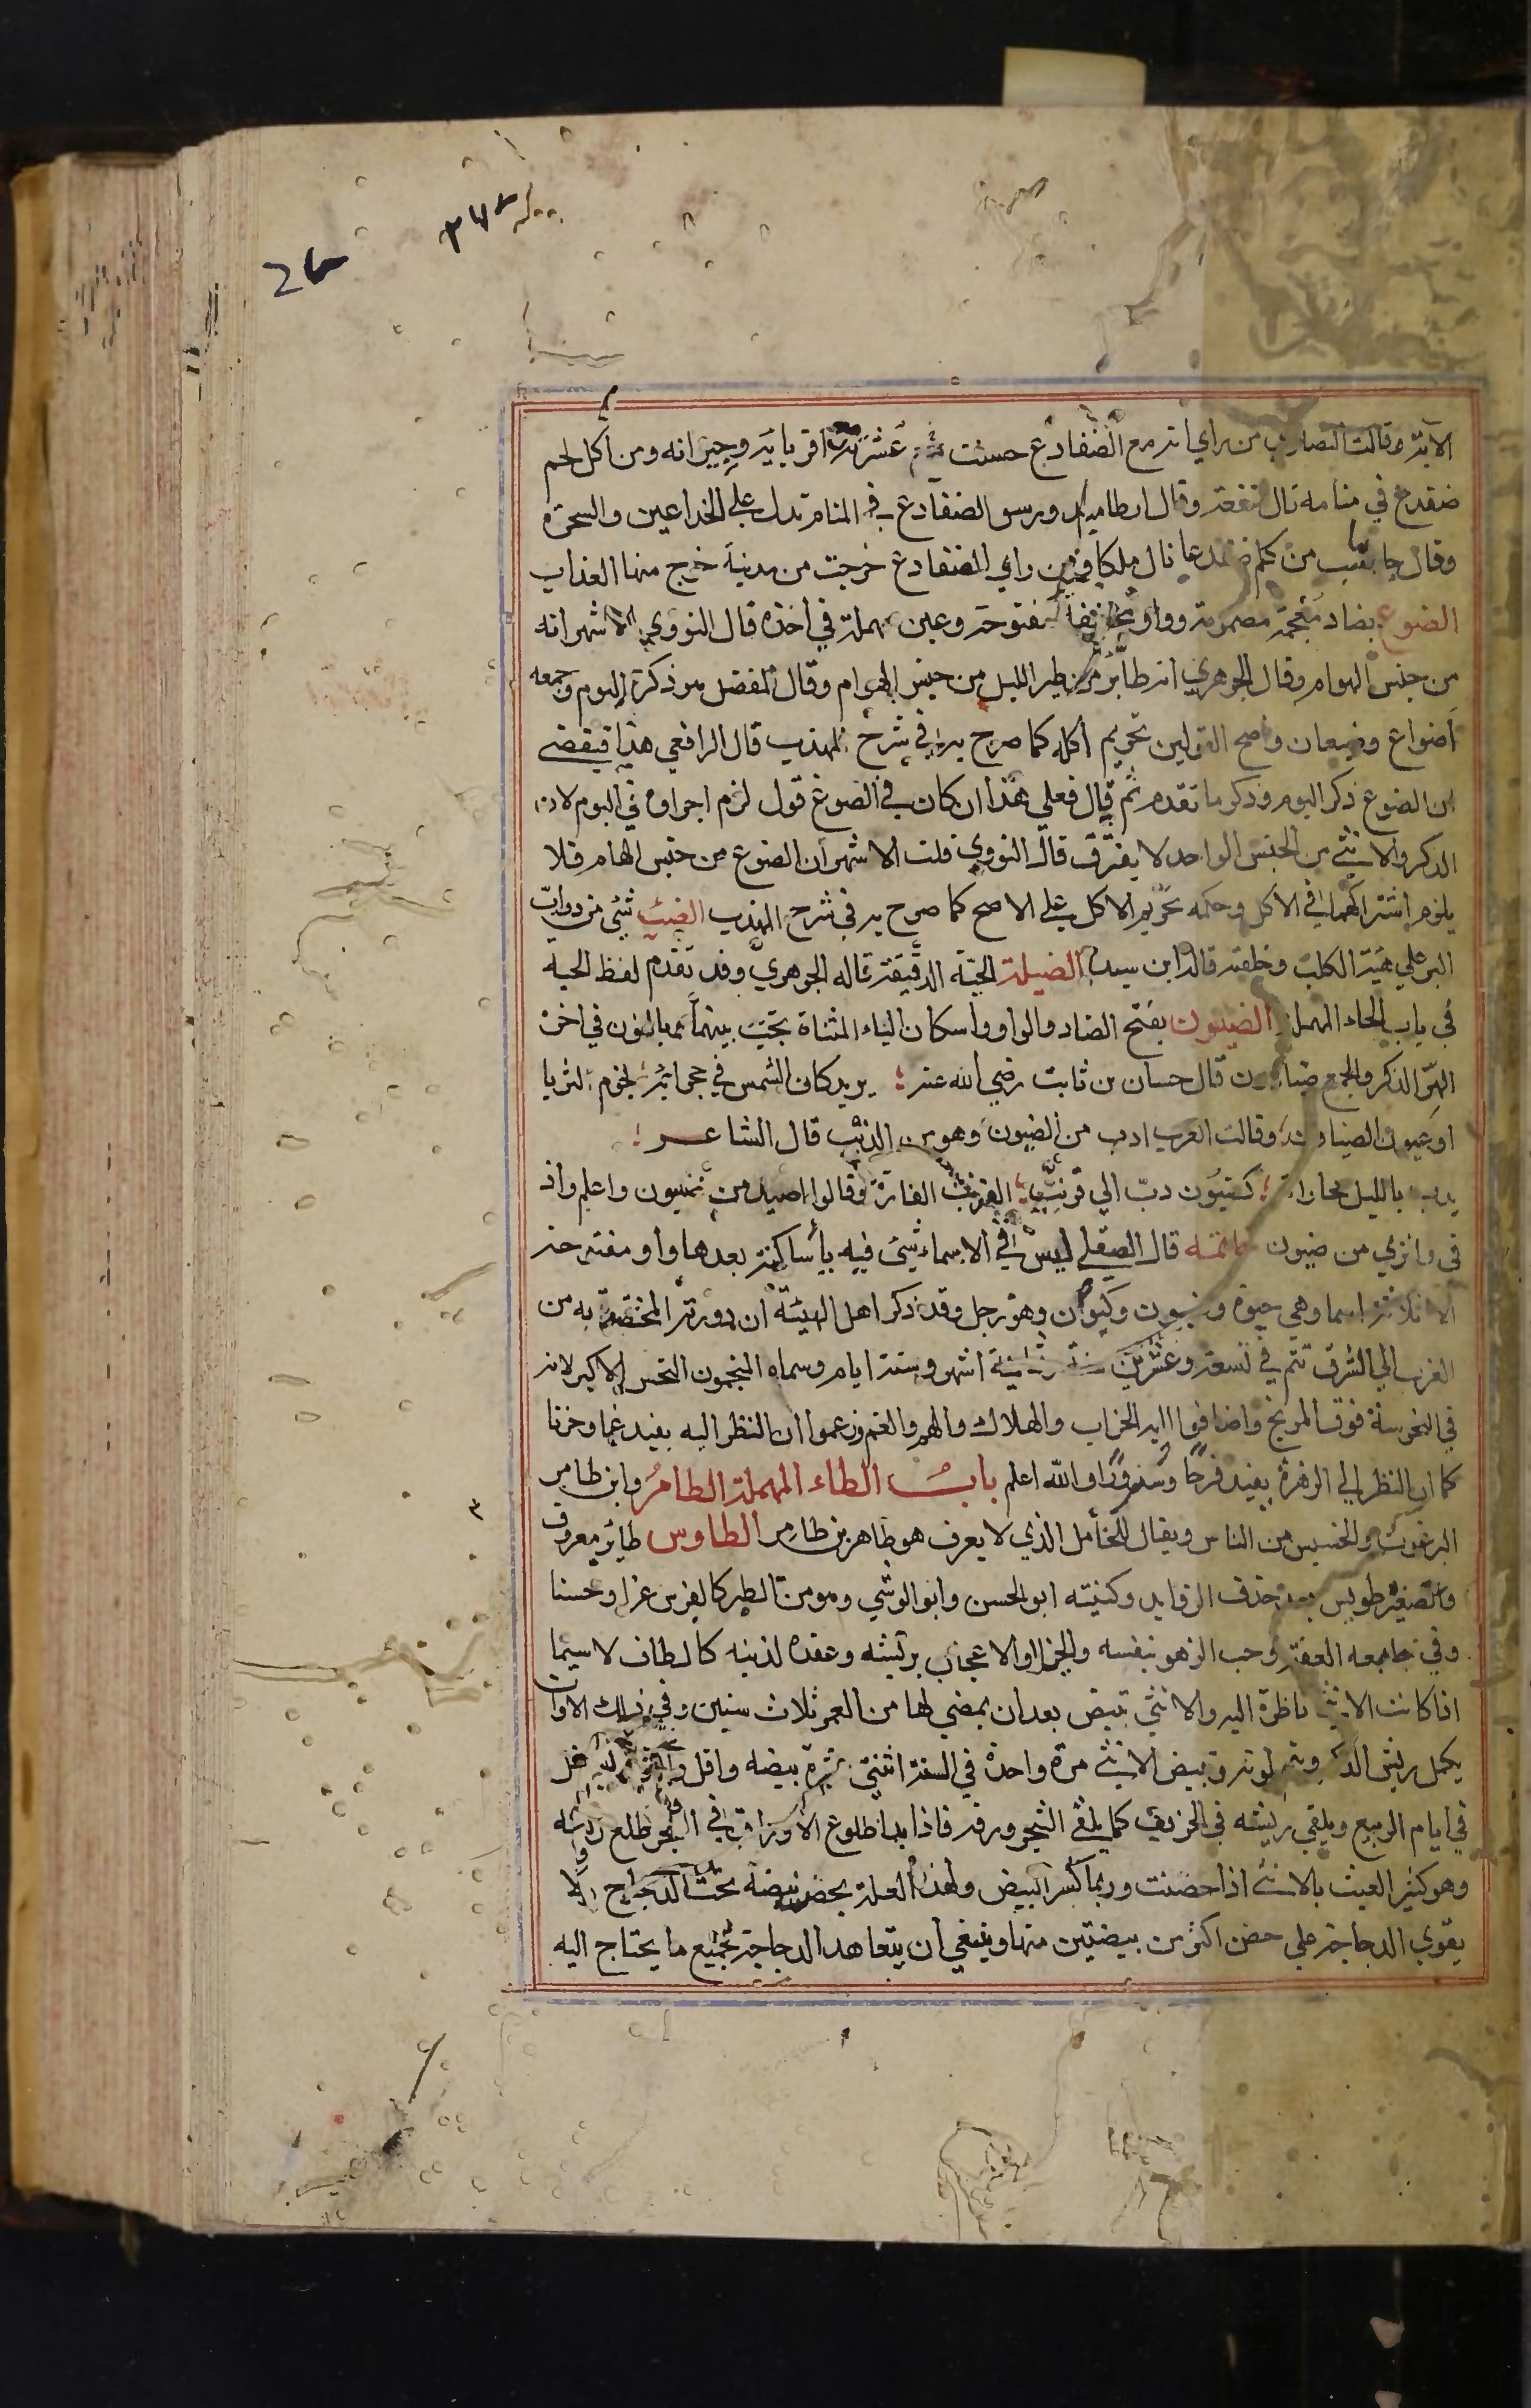 الآية وقالت النصارى من راي انه مع الضفادع حسنت عشرته اقربايه وجيرانه ومن اكل لحم
ضفدع في منامه نال منفعة وقال ارطاميدورس الضفادع في المنام تدل علي الخداعين والسحرة
وقال جاماسب من كلم ضفدعا نال ملكا ومن راي الضفادع خرجت من مدينة خرج منها العذاب
الضوع بضاد معجمة مضمومة وواو مفتوحة وعين مهملة في اخره قال النووي الاشهر انه
من جنس الهوام وقال الجوهري انه طائر من طير الليل من جنس الهوام وقال المفضل هو ذكر البوم وجمعه
اضواع وضيعان واصح القولين تحريم اكله كما صرح به في شرح المهذب قال الرافعي هذا يقتضي
ان الضوع ذكر البوم وذكر ما تقدم ثم قال فعلي هذا ان كان في الضوع قول لزم اجراوه في البوم لان
الذكر والانثي من الجنس الواحد لا يفترق قال النووي قلت الاشهر ان الضوع من جنس الهام فلا
يلزم اشتراكهما في الاكل وحكمه تحريم الاكل علي الاصح كما صرح به في شرح المهذب الضيب شئ من دواب
البر علي هيئة الكلب وخلقته قاله ابن سيده الضيلة الحية الدقيقة قاله الجوهري وقد تقدم لفظ الحية
في باب الحاء المهملة الضيون بفتح الضاد والواو واسكان الياء المثناة تحت بينهما وبالنون في اخره
الهر الذكر والجمع ضياون قال حسان بن ثابت رضي الله عنه يريد كان الشمس في حجراته نجوم الثريا
او عيون الضياون وقالت العرب ادب من الضيون وهو من الدبب قال الشاعر
يدب بالليل لجاراته كضيون دب الي قرنب القرنب الفارة وقالوا اصيد من ضيون واعلم واذ
في وانزي من ضيون خاتمة قال الصقلي ليس في الاسماء شئ فيه ياساكنة بعدها واو مفتوحة
الا ثلاثة اسما وهي حيوة وضيون وكيوان وهو زحل وقد ذكر اهل الهيئة ان دورته المختصة به من
الغرب الي الشرق تتم في تسعة وعشرين سنة وثمانية اشهر وستة ايام وسماه المنجمون النحس الاكبر لانه
في النحوسة فوق المريخ واضافوا اليه الخراب والهلاك والهم والغم وزعموا ان النظر اليه يفيد غما وحزنا
كما ان النظر الي الزهرة يفيد فرحا وسرورا والله اعلم باب الطاء المهملة الطامر وابن طامر
البرغوث والخسيس من الناس ويقال للخامل الذي لا يعرف هو طامر بن طامر الطاوس طائر معروف
والتصغير طويس بعد حذف الزوايد وكنيته ابو الحسن وابو الوشي وهو من الطير كالفرس عزا وحسنا
وفي طبعه العفة وحب الزهو بنفسه والخيلا والاعجاب بريشه وعقده لذنبه كالطاق لا سيما
اذا كانت الانثي ناظرة اليه والانثي تبيض بعد ان يمضي لها من العمر ثلاث سنين وفي ذلك الاوان
يكمل ريش الذكر ويتم لونه وتبيض الانثي مرة واحدة في السنة اثنتي عشرة بيضة واقل واكثر
في ايام الربيع ويلقي ريشه في الخريف كما يلقي الشجر ورقه فاذا بدا طلوع الاوراق في الشجر طلع ريشه
وهو كثير العبث بالانثي اذا حضنت وربما كسر البيض ولهذه العلة يحضن بيضه تحت الدجاج ولا
يقوي الدجاجة علي حضن اكثر من بيضتين منها وينبغي ان يتعاهد الدجاجة بجميع ما يحتاج اليه